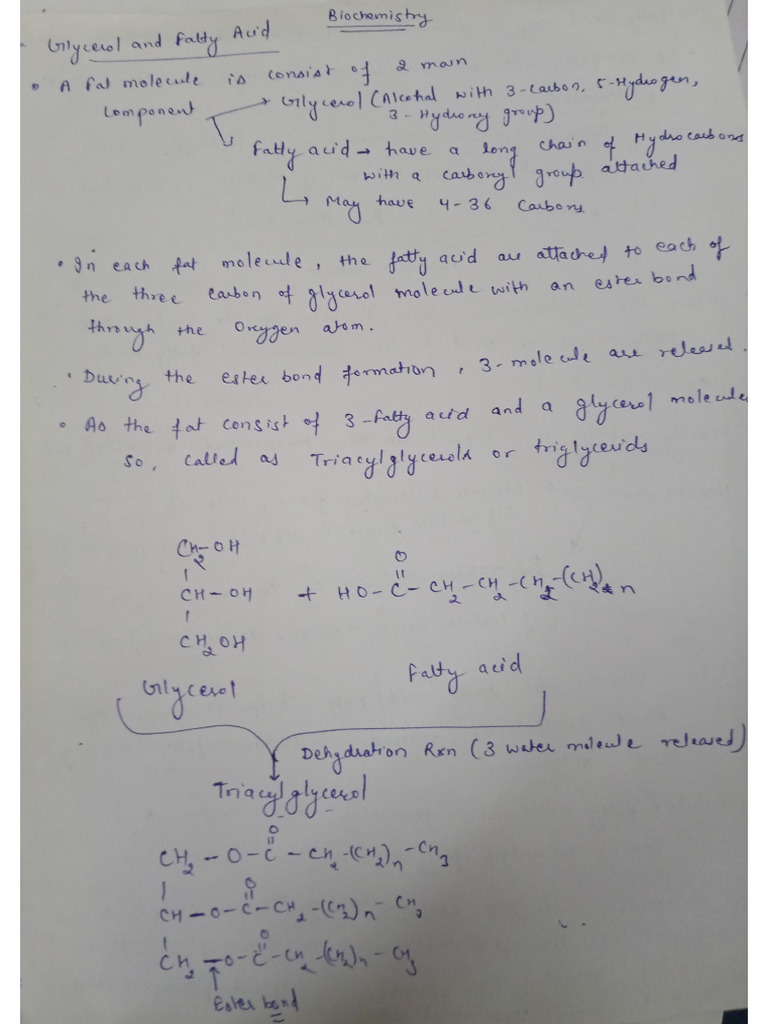 Biochemistry
Glycerol and Fatty Acid
• A fat molecule is consist of 2 main
component → Glycerol (Alcohal with 3-carbon, 5-Hydrogen,
3-Hydroxy group)
Fatty acid → have a long chain of Hydrocarbons
with a carbonyl group attached
→ May have 4-36 Carbons
• In each fat molecule, the fatty acid are attached to each of
the three carbon of glycerol molecule with an ester bond
through the Oxygen atom.
• During the ester bond formation, 3-molecule are released.
• As the fat consist of 3-fatty acid and a glycerol molecule
so, called as Triacylglycerols or triglycerids
CH2-OH
O
CH-OH + HO-C-CH2-CH2-CH2-(CH2)n
CH2OH
Glycerol
Fatty acid
Dehydration Rxn (3 water molecule released)
Triacylglycerol
O
CH2-O-C-CH2-(CH2)n-CH3
O
CH-O-C-CH2-(CH2)n-CH3
O
CH2-O-C-CH2-(CH2)n-CH3
Ester bond